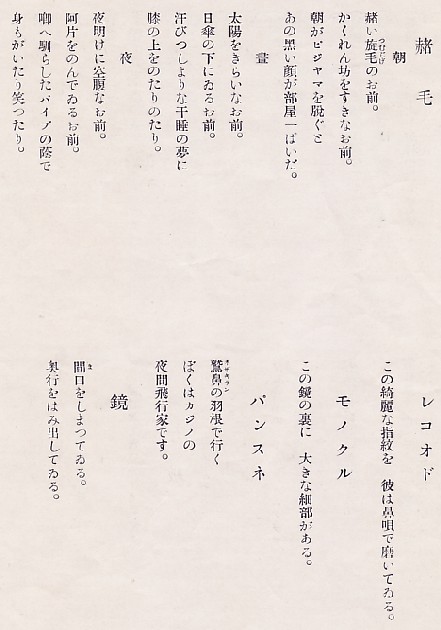 赭毛
朝
赭い旋毛のお前。
かくれん坊をすきなお前。
朝がピジヤマを脱ぐと
あの黒い顔が部屋一ぱいだ。
晝
太陽をきらいなお前。
日傘の下にゐるお前。
汗びつしよりな午睡の夢に
膝の上をのたりのたり。
夜
夜明けに空腹なお前。
阿片をのんでゐるお前。
啣へ馴らしたパイプの蔭で
身もがいたり笑つたり。
レコオド
この綺麗な指紋を 彼は鼻唄で磨いてゐる。
モノクル
この鏡の裏に 大きな細部がある。
パンスネ
鷲鼻の羽根で行く
ぼくはカジノの
夜間飛行家です。
鏡
間口をしまつてゐる。
奥行をはみ出してゐる。